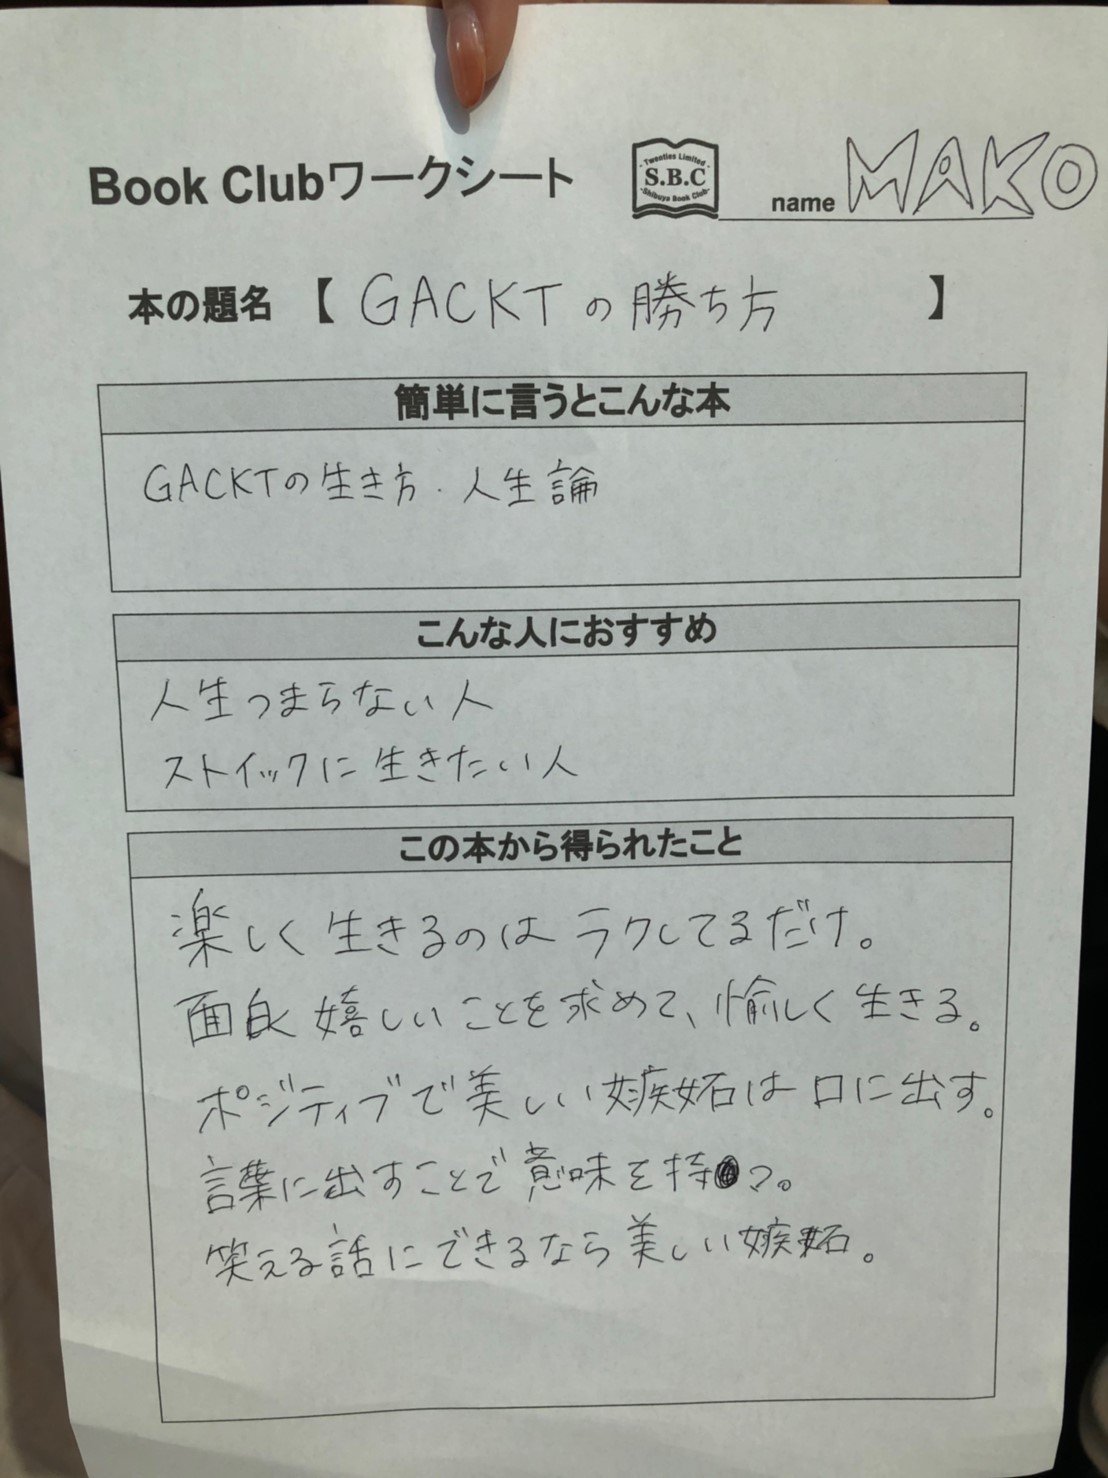 Book Clubワークシート
Twenties Limited
S.B.C
Shibuya Book Club
name MAKO
本の題名 【 GACKTの勝ち方 】
簡単に言うとこんな本
GACKTの生き方・人生論
こんな人におすすめ
人生つまらない人
ストイックに生きたい人
この本から得られたこと
楽しく生きるのはラクしてるだけ。
面白く嬉しいことを求めて、愉しく生きる。
ポジティブで美しい嫉妬は口に出す。
言葉に出すことで意味を持つ。
笑える話にできるなら美しい嫉妬。